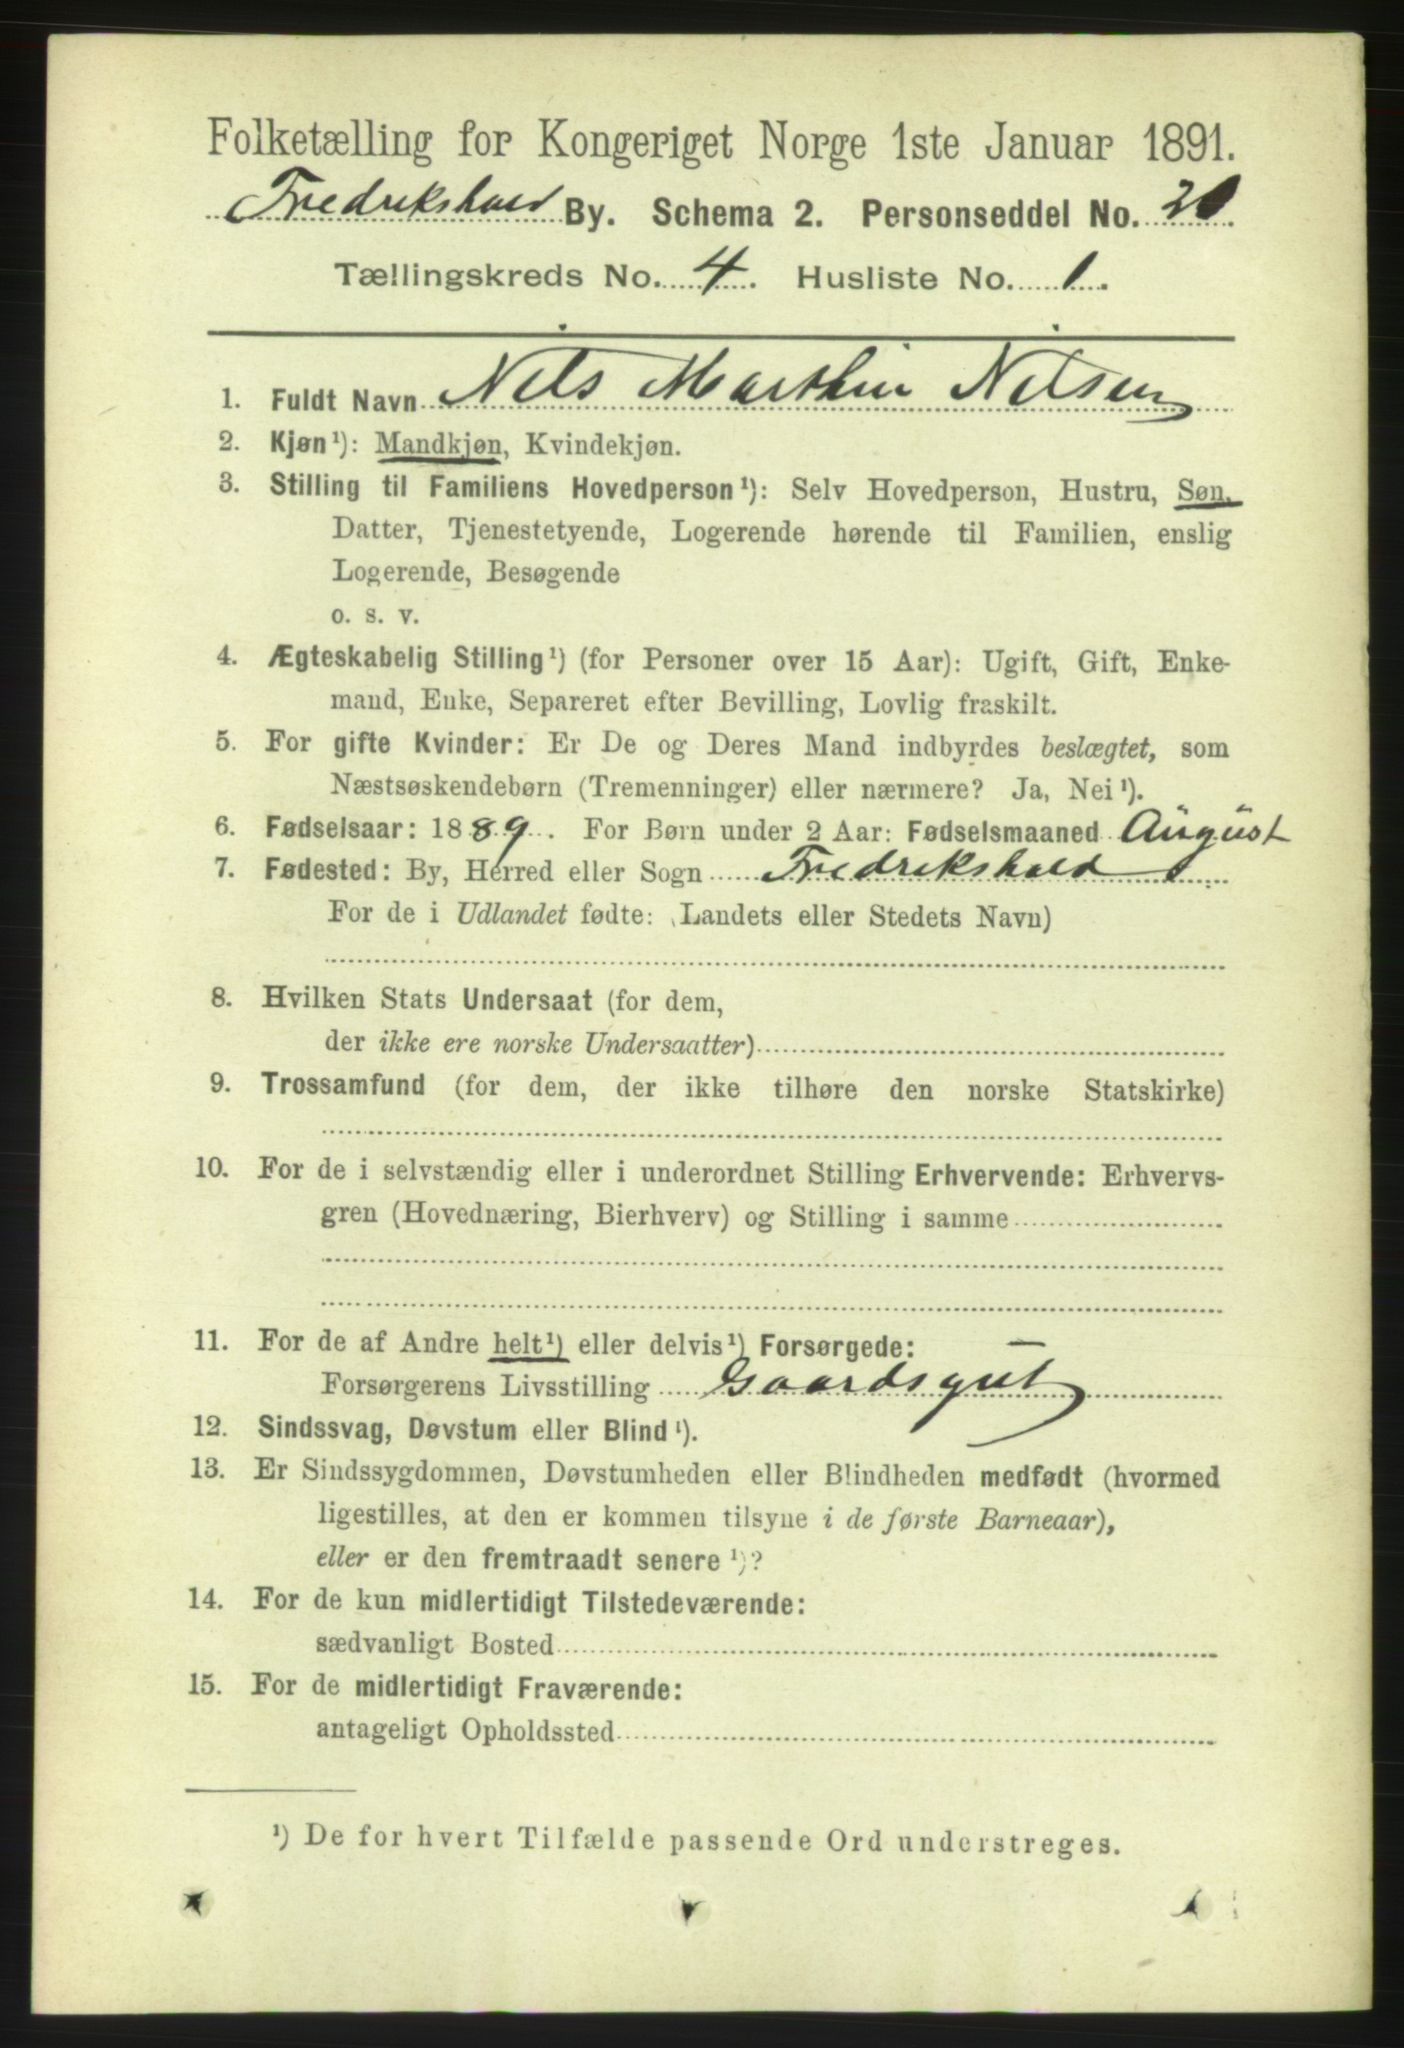 Folketælling for Kongeriget Norge 1ste Januar 1891.
Fredrikshald By. Schema 2. Personseddel No. 20.
Tællingskreds No. 4. Husliste No. 1.
1. Fuldt Navn Nils Marthin Nilsen
2. Kjøn¹): Mandkjøn, Kvindekjøn.
3. Stilling til Familiens Hovedperson¹): Selv Hovedperson, Hustru, Søn,
Datter, Tjenestetyende, Logerende hørende til Familien, enslig
Logerende, Besøgende
o. s. v.
4. Ægteskabelig Stilling¹) (for Personer over 15 Aar): Ugift, Gift, Enke-
mand, Enke, Separeret efter Bevilling, Lovlig fraskilt.
5. For gifte Kvinder: Er De og Deres Mand indbyrdes beslægtet, som
Næstsøskendebørn (Tremenninger) eller nærmere? Ja, Nei¹).
6. Fødselsaar: 1889. For Børn under 2 Aar: Fødselsmaaned August
7. Fødested: By, Herred eller Sogn Fredrikshald
For de i Udlandet fødte: (Landets eller Stedets Navn)
8. Hvilken Stats Undersaat (for dem,
der ikke ere norske Undersaatter)
9. Trossamfund (for dem, der ikke tilhøre den norske Statskirke)
10. For de i selvstændig eller i underordnet Stilling Erhvervende: Erhvervs-
gren (Hovednæring, Bierhverv) og Stilling i samme
11. For de af Andre helt¹) eller delvis¹) Forsørgede:
Forsørgerens Livsstilling Gaardsgut
12. Sindssvag, Døvstum eller Blind¹).
13. Er Sindssygdommen, Døvstumheden eller Blindheden medfødt (hvormed
ligestilles, at den er kommen tilsyne i de første Barneaar),
eller er den fremtraadt senere¹)?
14. For de kun midlertidigt Tilstedeværende:
sædvanligt Bosted
15. For de midlertidigt Fraværende:
antageligt Opholdssted
¹) De for hvert Tilfælde passende Ord understreges.